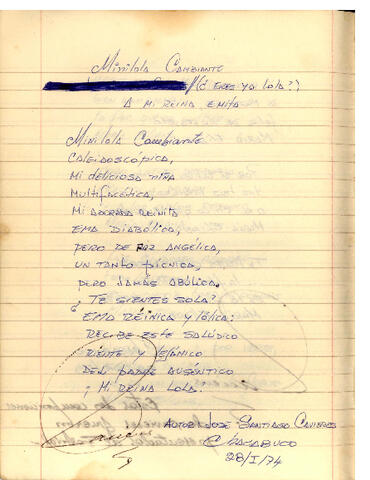 Minilola Cambiante
(¿ ERES YA LOLA?)
A MI REINA EMITA
Minilola Cambiante
CALEIDOSCÓPICA,
MI DELICIOSA NIÑA
MULTIFACÉTICA,
MI ADORADA REINITA
EMA DIABÓLICA,
PERO DE FAZ ANGÉLICA,
UN TANTO PÍCNICA,
PERO JAMÁS ABÚLICA.
¿TE SIENTES SOLA?
EMA REÍNICA Y LÓLICA:
RECIBE ESTE SALÚDICO
RIENTE Y
DEL PADRE AUSÉNTICO
¡MI REINA LOLA.
AUTOR: JOSE SANTIAGO CAVIERES
CHACABUCO
28/I/74